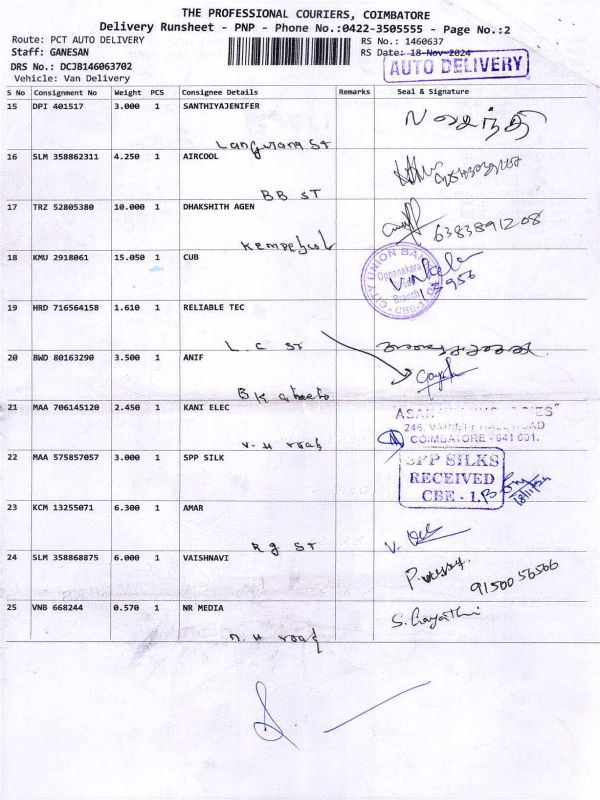 THE PROFESSIONAL COURIERS, COIMBATORE
Delivery Runsheet - PNP - Phone No.:0422-3505555 - Page No.:2
Route: PCT AUTO DELIVERY
RS No.: 1460637
Staff: GANESAN
RS Date: 18-Nov-2024
AUTO DELIVERY
DRS No.: DCJB146063702
Vehicle: Van Delivery
S No Consignment No Weight PCS Consignee Details Remarks Seal & Signature
15 DPI 401517 3.000 1 SANTHIYAJENIFER
16 SLM 358862311 4.250 1 AIRCOOL
BB ST
17 TRZ 52805380 10.000 1 DHAKSHITH AGEN
6383891208
18 KMU 2918061 15.050 1 CUB
CITY UNION BANK
Oppanakara
Branch
CBE-1
19 HRD 716564158 1.610 1 RELIABLE TEC
L. C ST
20 BWD 80163290 3.500 1 ANIF
BK
21 MAA 706145120 2.450 1 KANI ELEC
246, VARIETY HALL ROAD
COIMBATORE - 641 001.
V. H road
22 MAA 575857057 3.000 1 SPP SILK
SPP SILKS
RECEIVED
CBE - 1.
23 KCM 13255071 6.300 1 AMAR
R g ST
24 SLM 358868875 6.000 1 VAISHNAVI
9150056566
25 VNB 668244 0.570 1 NR MEDIA
S. Gayathri